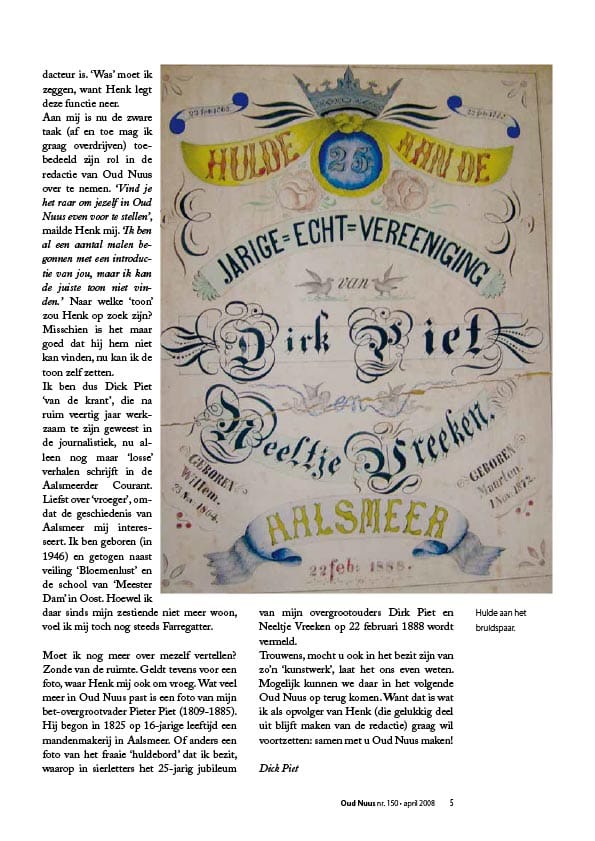 dacteur is. ‘Was’ moet ik
zeggen, want Henk legt
deze functie neer.
Aan mij is nu de zware
taak (af en toe mag ik
graag overdrijven) toe-
bedeeld zijn rol in de
redactie van Oud Nuus
over te nemen. ‘Vind je
het raar om jezelf in Oud
Nuus even voor te stellen’,
mailde Henk mij. ‘Ik ben
al een aantal malen be-
gonnen met een introduc-
tie van jou, maar ik kan
de juiste toon niet vin-
den.’ Naar welke ‘toon’
zou Henk op zoek zijn?
Misschien is het maar
goed dat hij hem niet
kan vinden, nu kan ik de
toon zelf zetten.
Ik ben dus Dick Piet
‘van de krant’, die na
ruim veertig jaar werk-
zaam te zijn geweest in
de journalistiek, nu al-
leen nog maar ‘losse’
verhalen schrijft in de
Aalsmeerder Courant.
Liefst over ‘vroeger’, om-
dat de geschiedenis van
Aalsmeer mij interes-
seert. Ik ben geboren (in
1946) en getogen naast
veiling ‘Bloemenlust’ en
de school van ‘Meester
Dam’ in Oost. Hoewel ik
daar sinds mijn zestiende niet meer woon,
voel ik mij toch nog steeds Farregatter.
Moet ik nog meer over mezelf vertellen?
Zonde van de ruimte. Geldt tevens voor een
foto, waar Henk mij ook om vroeg. Wat veel
meer in Oud Nuus past is een foto van mijn
bet-overgrootvader Pieter Piet (1809-1885).
Hij begon in 1825 op 16-jarige leeftijd een
mandenmakerij in Aalsmeer. Of anders een
foto van het fraaie ‘huldebord’ dat ik bezit,
waarop in sierletters het 25-jarig jubileum
22 feb: 1863.
22 feb: 1888.
HULDE 25 AAN DE
JARIGE=ECHT=VEREENIGING
van
Dirk Piet
en
Neeltje Vreeken.
GEBOREN
Willem.
23 Nov. 1864.
GEBOREN
Maarten.
1 Nov. 1872.
AALSMEER
22 feb: 1888.
van mijn overgrootouders Dirk Piet en
Neeltje Vreeken op 22 februari 1888 wordt
vermeld.
Trouwens, mocht u ook in het bezit zijn van
zo’n ‘kunstwerk’, laat het ons even weten.
Mogelijk kunnen we daar in het volgende
Oud Nuus op terug komen. Want dat is wat
ik als opvolger van Henk (die gelukkig deel
uit blijft maken van de redactie) graag wil
voortzetten: samen met u Oud Nuus maken!
Dick Piet
Hulde aan het
bruidspaar.
Oud Nuus nr. 150 • april 2008 5